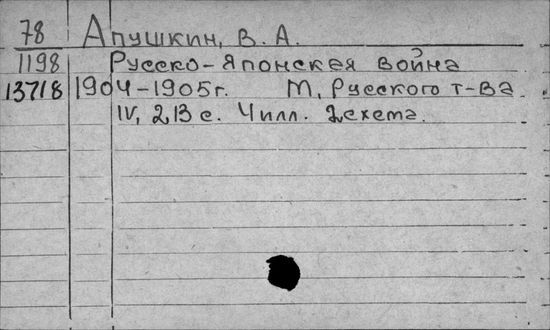 78 Апушкин, В. А.
1198 Русско-Японская война
13718 1904-1905г. М, Русского т-ва
IV, 213 с. Ч илл. 2схема.